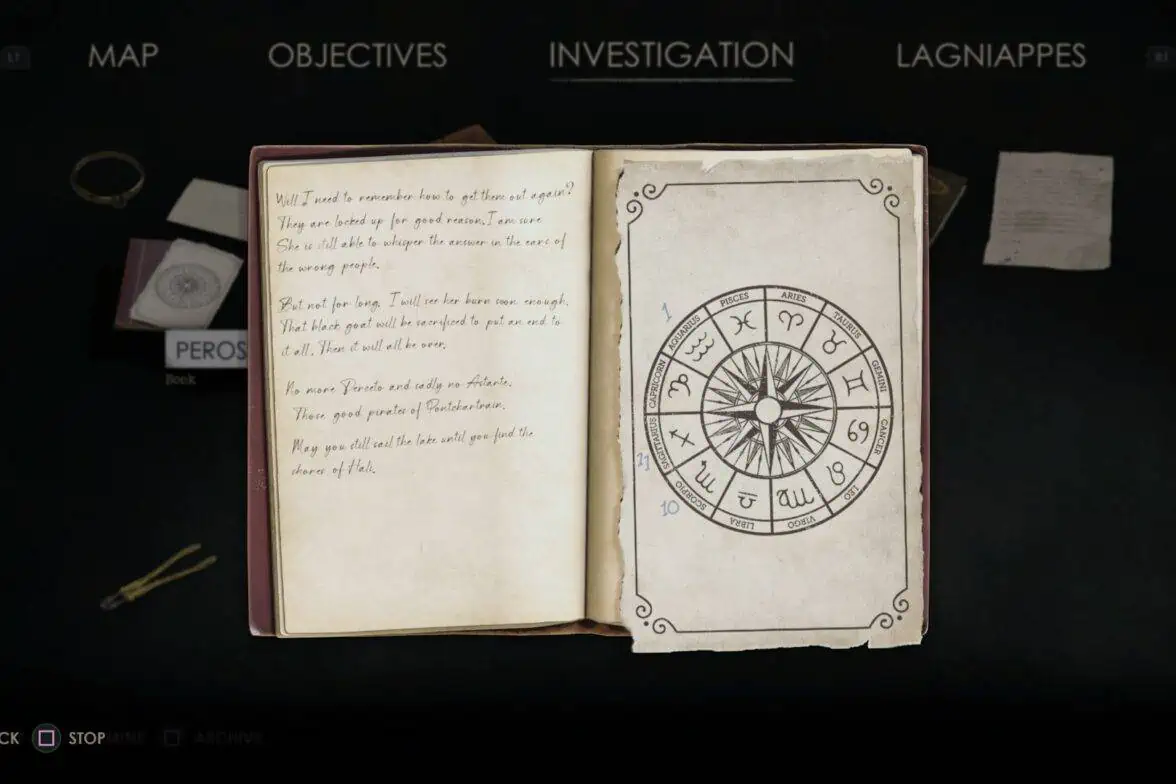 MAP OBJECTIVES INVESTIGATION LAGNIAPPES
Will I need to remember how to get them out again?
They are locked up for good reason. I am sure
She is still able to whisper the answer in the ears of
the wrong people.
But not for long. I will see her burn soon enough.
That black goat will be sacrificed to put an end to
it all. Then it will all be over.
No more Derceto and sadly no Astarte.
Those good pirates of Pontchartrain.
May you still sail the lake until you find the
shores of Hali.
1
PISCES
ARIES
AQUARIUS
TAURUS
CAPRICORN
GEMINI
SAGITTARIUS
CANCER
11
SCORPIO
LEO
10
LIBRA
VIRGO
PEROS
Book
CK STOP
ARCHIVE